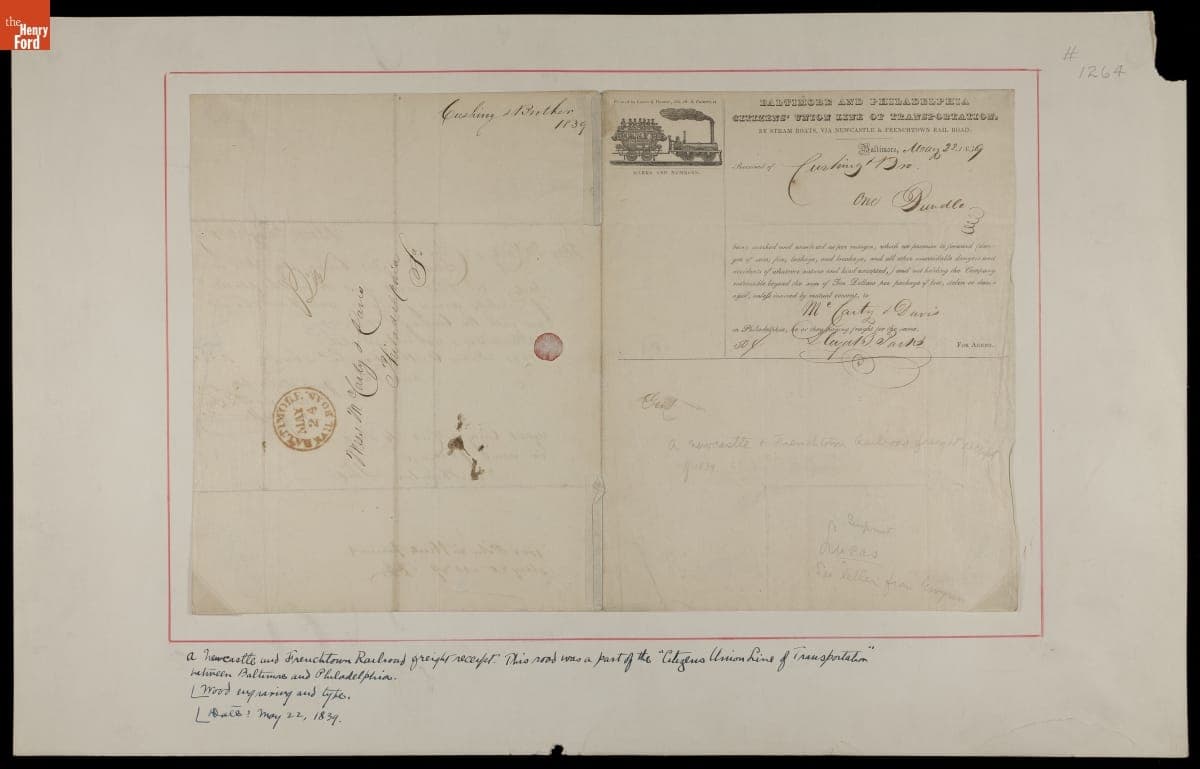 the
Henry
Ford
#
1264
Cushing & Brother
1839
BALTIMORE AND PHILADELPHIA
CITIZENS' UNION LINE OF TRANSPORTATION,
BY STEAM BOATS, VIA NEWCASTLE & FRENCHTOWN RAIL ROAD.
MARKS AND NUMBERS.
Baltimore, May 22 1839
Received of Cushing & Bro.
One Bundle
being marked and numbered as per margin, which we promise to forward (dan-
gers of seas, fire, leakage, and breakage, and all other unavoidable dangers and
accidents of whatever nature and kind excepted,) and not holding the Company
responsible beyond the sum of Ten Dollars per package if lost, stolen or dam-
aged, unless insured by mutual consent, to
Mc Carty & Davis
in Philadelphia, he or they paying freight for the same.
FOR AGENT.
Mess Mc Carty & Davis
Philadelphia
BALTIMORE
MAY
24
a Newcastle & Frenchtown Railroad freight receipt
of 1839
Lucas
See letter from
a Newcastle and Frenchtown Railroad freight receipt. This road was a part of the "Citizens Union Line of Transportation"
between Baltimore and Philadelphia.
Wood engraving and type.
Date: May 22, 1839.